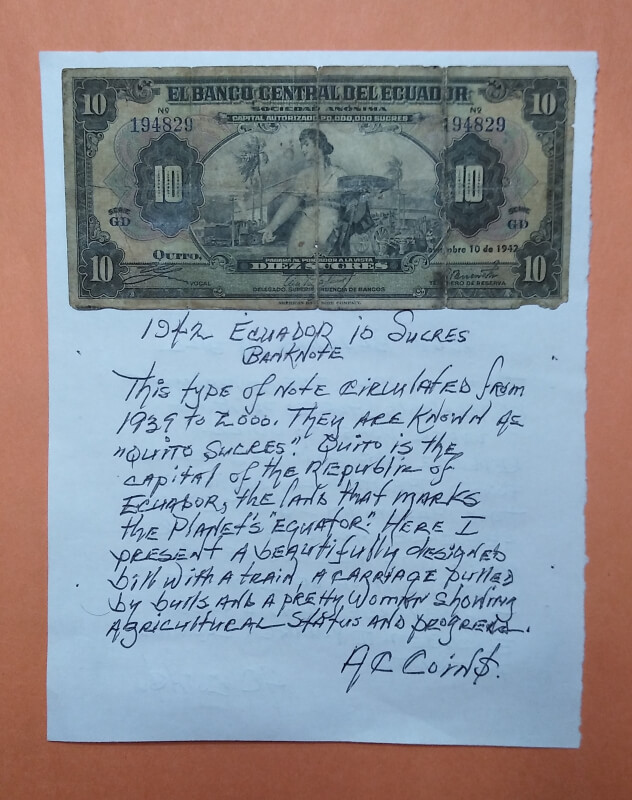 10
10
EL BANCO CENTRAL DEL ECUADOR
SOCIEDAD ANÓNIMA
CAPITAL AUTORIZADO 20,000,000 SUCRES
Nº
194829
Nº
94829
10
10
SERIE
GD
SERIE
GD
QUITO,
mbre 10 de 1942
PAGARÁ AL PORTADOR A LA VISTA
10
DIEZ SUCRES
10
VOCAL
DELEGADO, SUPERINTENDENCIA DE BANCOS
TESORERO DE RESERVA
AMERICAN BANK NOTE COMPANY.
1942 ECUADOR 10 SUCRES
BANKNOTE
This type of note circulated from
1939 to 2000. They are known as
"QUITO SUCRES". Quito is the
capital of the Republic of
ECUADOR, the land that marks
the Planet's "EQUATOR". Here I
present a beautifully designed
bill with a train, a carriage pulled
by bulls and a pretty woman showing
agricultural status and progress.
AC COIN$.